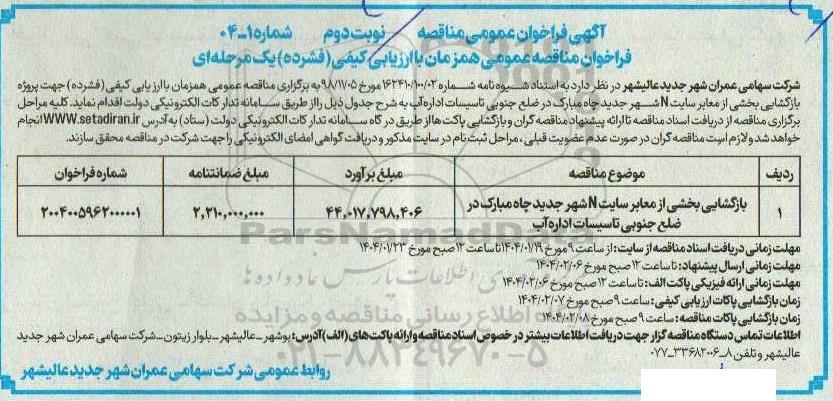 آگهی فراخوان عمومی مناقصه نوبت دوم شماره ۱-۰۴
فراخوان مناقصه عمومی همزمان با ارزیابی کیفی (فشرده) یک مرحله‌ای
شرکت سهامی عمران شهر جدید عالیشهر در نظر دارد به استناد شیوه نامه شماره ۱۶۲۴۱۰/۱۰۰/۰۲ مورخ ۹۸/۱۷۰۵ به برگزاری مناقصه عمومی همزمان با ارزیابی کیفی (فشرده) جهت پروژه
بازگشایی بخشی از معابر سایت N شهر جدید چاه مبارک در ضلع جنوبی تاسیسات اداره آب به شرح جدول ذیل را از طریق سامانه تدارکات الکترونیکی دولت اقدام نماید. کلیه مراحل
برگزاری مناقصه از دریافت اسناد مناقصه تا ارائه پیشنهاد مناقصه گران و بازگشایی پاکت ها از طریق درگاه سامانه تدارکات الکترونیکی دولت (ستاد) به آدرس WWW.setadiran.ir انجام
خواهد شد و لازم است مناقصه گران در صورت عدم عضویت قبلی، مراحل ثبت نام در سایت مذکور و دریافت گواهی امضای الکترونیکی را جهت شرکت در مناقصه محقق سازند.
ردیف موضوع مناقصه مبلغ برآورد مبلغ ضمانتنامه شماره فراخوان
۱ بازگشایی بخشی از معابر سایت N شهر جدید چاه مبارک در ضلع جنوبی تاسیسات اداره آب ۴۴,۰۱۷,۷۹۸,۴۰۶ ۲,۲۱۰,۰۰۰,۰۰۰ ۲۰۰۴۰۰۵۹۶۲۰۰۰۰۰۱
مهلت زمانی دریافت اسناد مناقصه از سایت: از ساعت ۹ مورخ ۱۴۰۴/۰۱/۱۹ تا ساعت ۱۲ صبح مورخ ۱۴۰۴/۰۱/۲۳
مهلت زمانی ارسال پیشنهاد: تا ساعت ۱۲ صبح مورخ ۱۴۰۴/۰۲/۰۶
مهلت زمانی ارائه فیزیکی پاکت الف: تا ساعت ۱۲ صبح مورخ ۱۴۰۴/۰۲/۰۶
زمان بازگشایی پاکات ارزیابی کیفی: ساعت ۹ صبح مورخ ۱۴۰۴/۰۲/۰۷
زمان بازگشایی پاکات مناقصه: ساعت ۹ صبح مورخ ۱۴۰۴/۰۲/۰۸
اطلاعات تماس دستگاه مناقصه گزار جهت دریافت اطلاعات بیشتر در خصوص اسناد مناقصه و ارائه پاکت های (الف) آدرس: بوشهر-عالیشهر-بلوار زیتون-شرکت سهامی عمران شهر جدید
عالیشهر و تلفن ۸-۳۳۶۸۲۰۰۶-۰۷۷
روابط عمومی شرکت سهامی عمران شهر جدید عالیشهر
ParsNamadData
۰۲۱-۸۸۳۴۹۶۷۰-۵